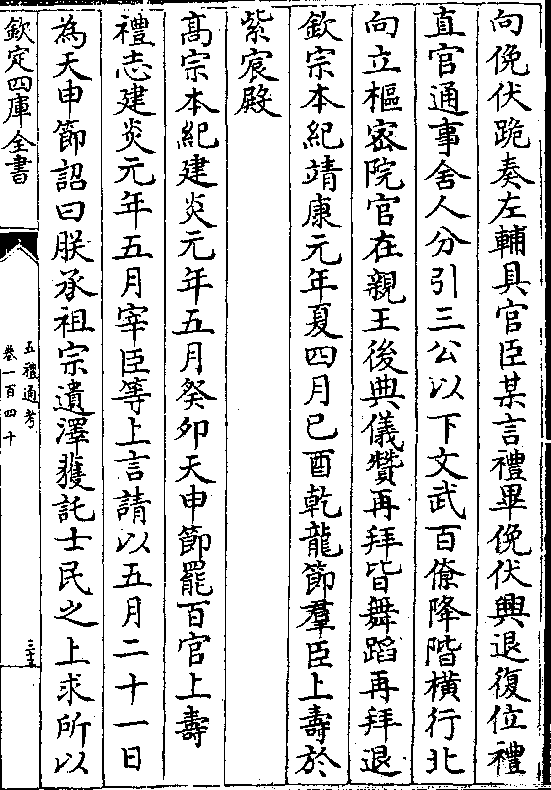 向俛伏跪奏左輔具官臣某言禮畢俛伏興退復位禮
直官通事舍人分引三公以下文武百僚降階橫行北
向立樞宻院官在親王後典儀贊再拜皆舞蹈再拜退
欽宗本紀靖康元年夏四月己酉乾龍節羣臣上壽於
紫宸殿
髙宗本紀建炎元年五月癸卯天申節罷百官上壽
禮志建炎元年五月宰臣等上言請以五月二十一日
為天申節詔曰朕承祖宗遺澤獲託士民之上求所以
欽定四庫全書
五禮通考
卷一百四十
三十五